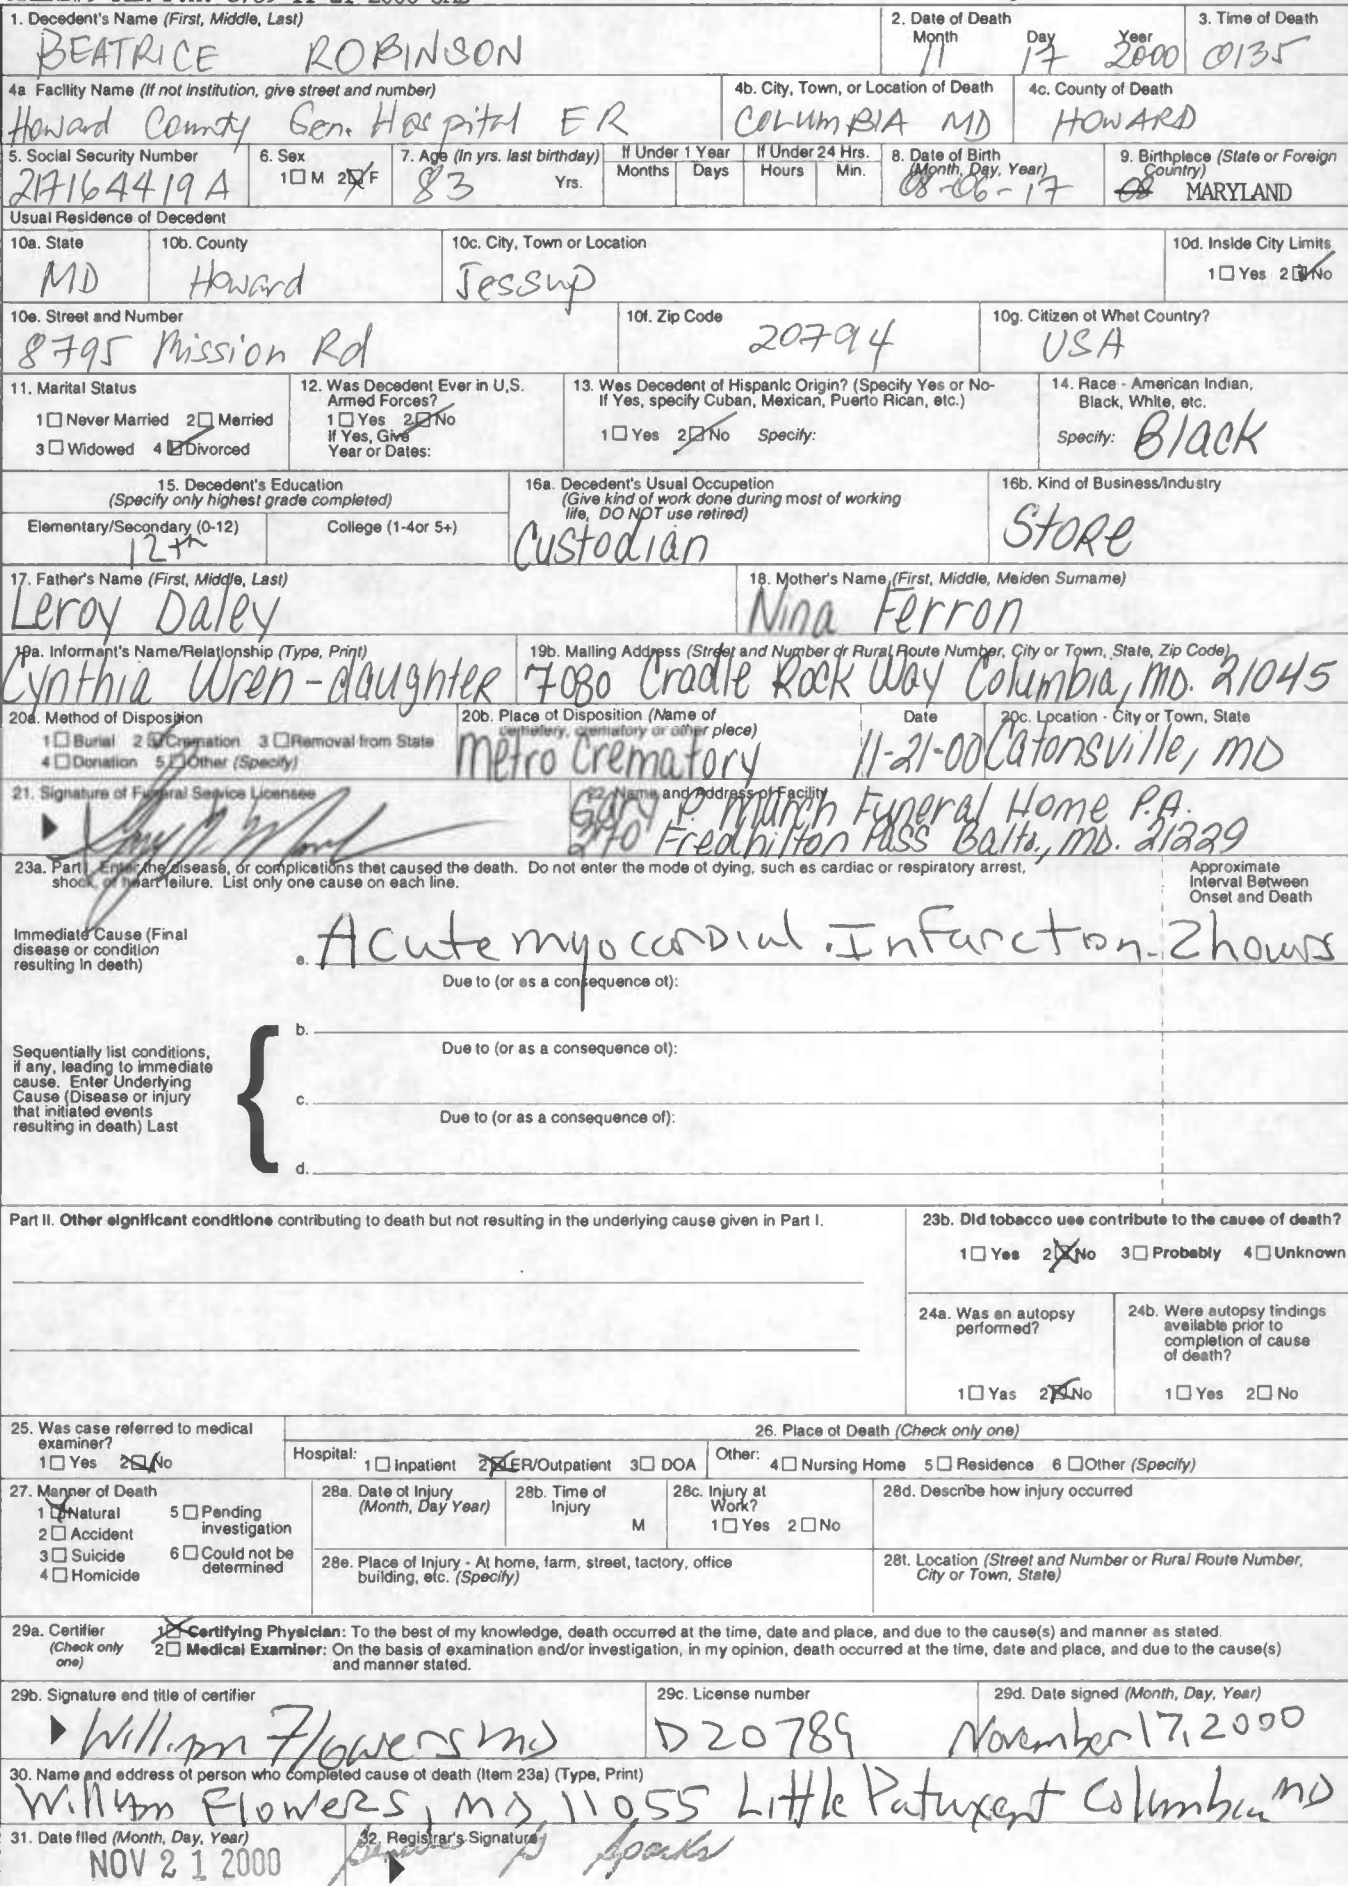 1. Decedent's Name (First, Middle, Last)
BEATRICE ROBINSON
2. Date of Death
Month Day Year
11 17 2000
3. Time of Death
0135
4a Facility Name (If not institution, give street and number)
Howard County Gen. Hospital ER
4b. City, Town, or Location of Death
COLUMBIA MD
4c. County of Death
HOWARD
5. Social Security Number
217164419A
6. Sex
1□ M 2☒ F
7. Age (In yrs. last birthday)
83 Yrs.
If Under 1 Year
Months Days
If Under 24 Hrs.
Hours Min.
8. Date of Birth
(Month, Day, Year)
08-06-17
9. Birthplace (State or Foreign
Country)
MARYLAND
Usual Residence of Decedent
10a. State
MD
10b. County
Howard
10c. City, Town or Location
Jessup
10d. Inside City Limits
1□ Yes 2☒ No
10e. Street and Number
8795 Mission Rd
10f. Zip Code
20794
10g. Citizen of What Country?
USA
11. Marital Status
1□ Never Married 2□ Married
3□ Widowed 4☒ Divorced
12. Was Decedent Ever in U.S.
Armed Forces?
1□ Yes 2☒ No
If Yes, Give
Year or Dates:
13. Was Decedent of Hispanic Origin? (Specify Yes or No-
If Yes, specify Cuban, Mexican, Puerto Rican, etc.)
1□ Yes 2☒ No Specify:
14. Race - American Indian,
Black, White, etc.
Specify: Black
15. Decedent's Education
(Specify only highest grade completed)
Elementary/Secondary (0-12)
12th
College (1-4or 5+)
16a. Decedent's Usual Occupation
(Give kind of work done during most of working
life, DO NOT use retired)
Custodian
16b. Kind of Business/Industry
Store
17. Father's Name (First, Middle, Last)
Leroy Daley
18. Mother's Name (First, Middle, Maiden Surname)
Nina Ferron
19a. Informant's Name/Relationship (Type, Print)
Cynthia Wren - daughter
19b. Mailing Address (Street and Number or Rural Route Number, City or Town, State, Zip Code)
7080 Cradle Rock Way Columbia, MD. 21045
20a. Method of Disposition
1□ Burial 2☒ Cremation 3□ Removal from State
4□ Donation 5□ Other (Specify)
20b. Place of Disposition (Name of
cemetery, crematory or other place)
Metro Crematory
Date
11-21-00
20c. Location - City or Town, State
Catonsville, MD
21. Signature of Funeral Service Licensee
22. Name and Address of Facility
Gary P. March Funeral Home P.A.
270 Fredhilton Pass Balto., MD. 21229
23a. Part I. Enter the disease, or complications that caused the death. Do not enter the mode of dying, such as cardiac or respiratory arrest,
shock, or heart failure. List only one cause on each line.
Approximate
Interval Between
Onset and Death
Immediate Cause (Final
disease or condition
resulting in death)
a. Acute myocardial Infarction 2 hours
Due to (or as a consequence of):
b.
Due to (or as a consequence of):
Sequentially list conditions,
if any, leading to immediate
cause. Enter Underlying
Cause (Disease or injury
that initiated events
resulting in death) Last
c.
Due to (or as a consequence of):
d.
Part II. Other significant conditions contributing to death but not resulting in the underlying cause given in Part I.
23b. Did tobacco use contribute to the cause of death?
1□ Yes 2☒ No 3□ Probably 4□ Unknown
24a. Was an autopsy
performed?
1□ Yes 2☒ No
24b. Were autopsy findings
available prior to
completion of cause
of death?
1□ Yes 2□ No
25. Was case referred to medical
examiner?
1□ Yes 2☒ No
26. Place of Death (Check only one)
Hospital: 1□ Inpatient 2☒ ER/Outpatient 3□ DOA
Other: 4□ Nursing Home 5□ Residence 6□ Other (Specify)
27. Manner of Death
1☒ Natural
2□ Accident
3□ Suicide
4□ Homicide
5□ Pending
investigation
6□ Could not be
determined
28a. Date of Injury
(Month, Day Year)
28b. Time of
Injury
M
28c. Injury at
Work?
1□ Yes 2□ No
28d. Describe how injury occurred
28e. Place of Injury - At home, farm, street, factory, office
building, etc. (Specify)
28f. Location (Street and Number or Rural Route Number,
City or Town, State)
29a. Certifier
(Check only
one)
1☒ Certifying Physician: To the best of my knowledge, death occurred at the time, date and place, and due to the cause(s) and manner as stated.
2□ Medical Examiner: On the basis of examination and/or investigation, in my opinion, death occurred at the time, date and place, and due to the cause(s)
and manner stated.
29b. Signature and title of certifier
William Flowers MD
29c. License number
D20789
29d. Date signed (Month, Day, Year)
November 17, 2000
30. Name and address of person who completed cause of death (Item 23a) (Type, Print)
William Flowers, MD, 11055 Little Patuxent Columbia MD
31. Date filed (Month, Day, Year)
NOV 21 2000
32. Registrar's Signature
Sparks